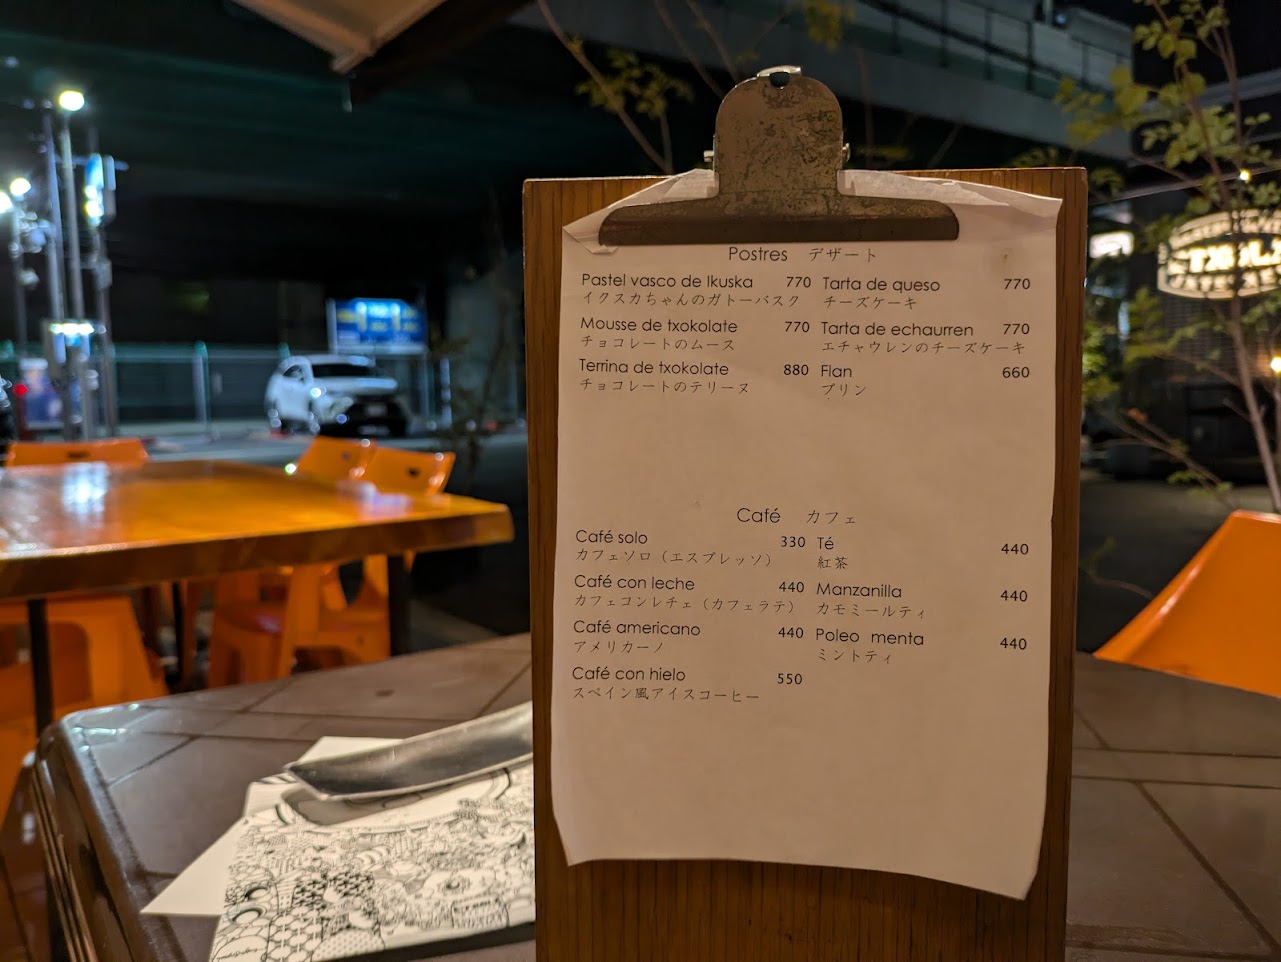 Postres デザート
Pastel vasco de Ikuska 770
イクスカちゃんのガトーバスク
Mousse de txokolate 770
チョコレートのムース
Terrina de txokolate 880
チョコレートのテリーヌ
Tarta de queso 770
チーズケーキ
Tarta de echaurren 770
エチャウレンのチーズケーキ
Flan 660
プリン
Café カフェ
Café solo 330
カフェソロ（エスプレッソ）
Café con leche 440
カフェコンレチェ（カフェラテ）
Café americano 440
アメリカーノ
Café con hielo 550
スペイン風アイスコーヒー
Té 440
紅茶
Manzanilla 440
カモミールティ
Poleo menta 440
ミントティ